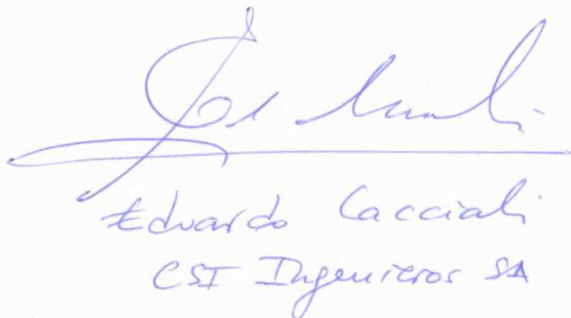 Eduardo Cacciali
CSI Ingenieros SA